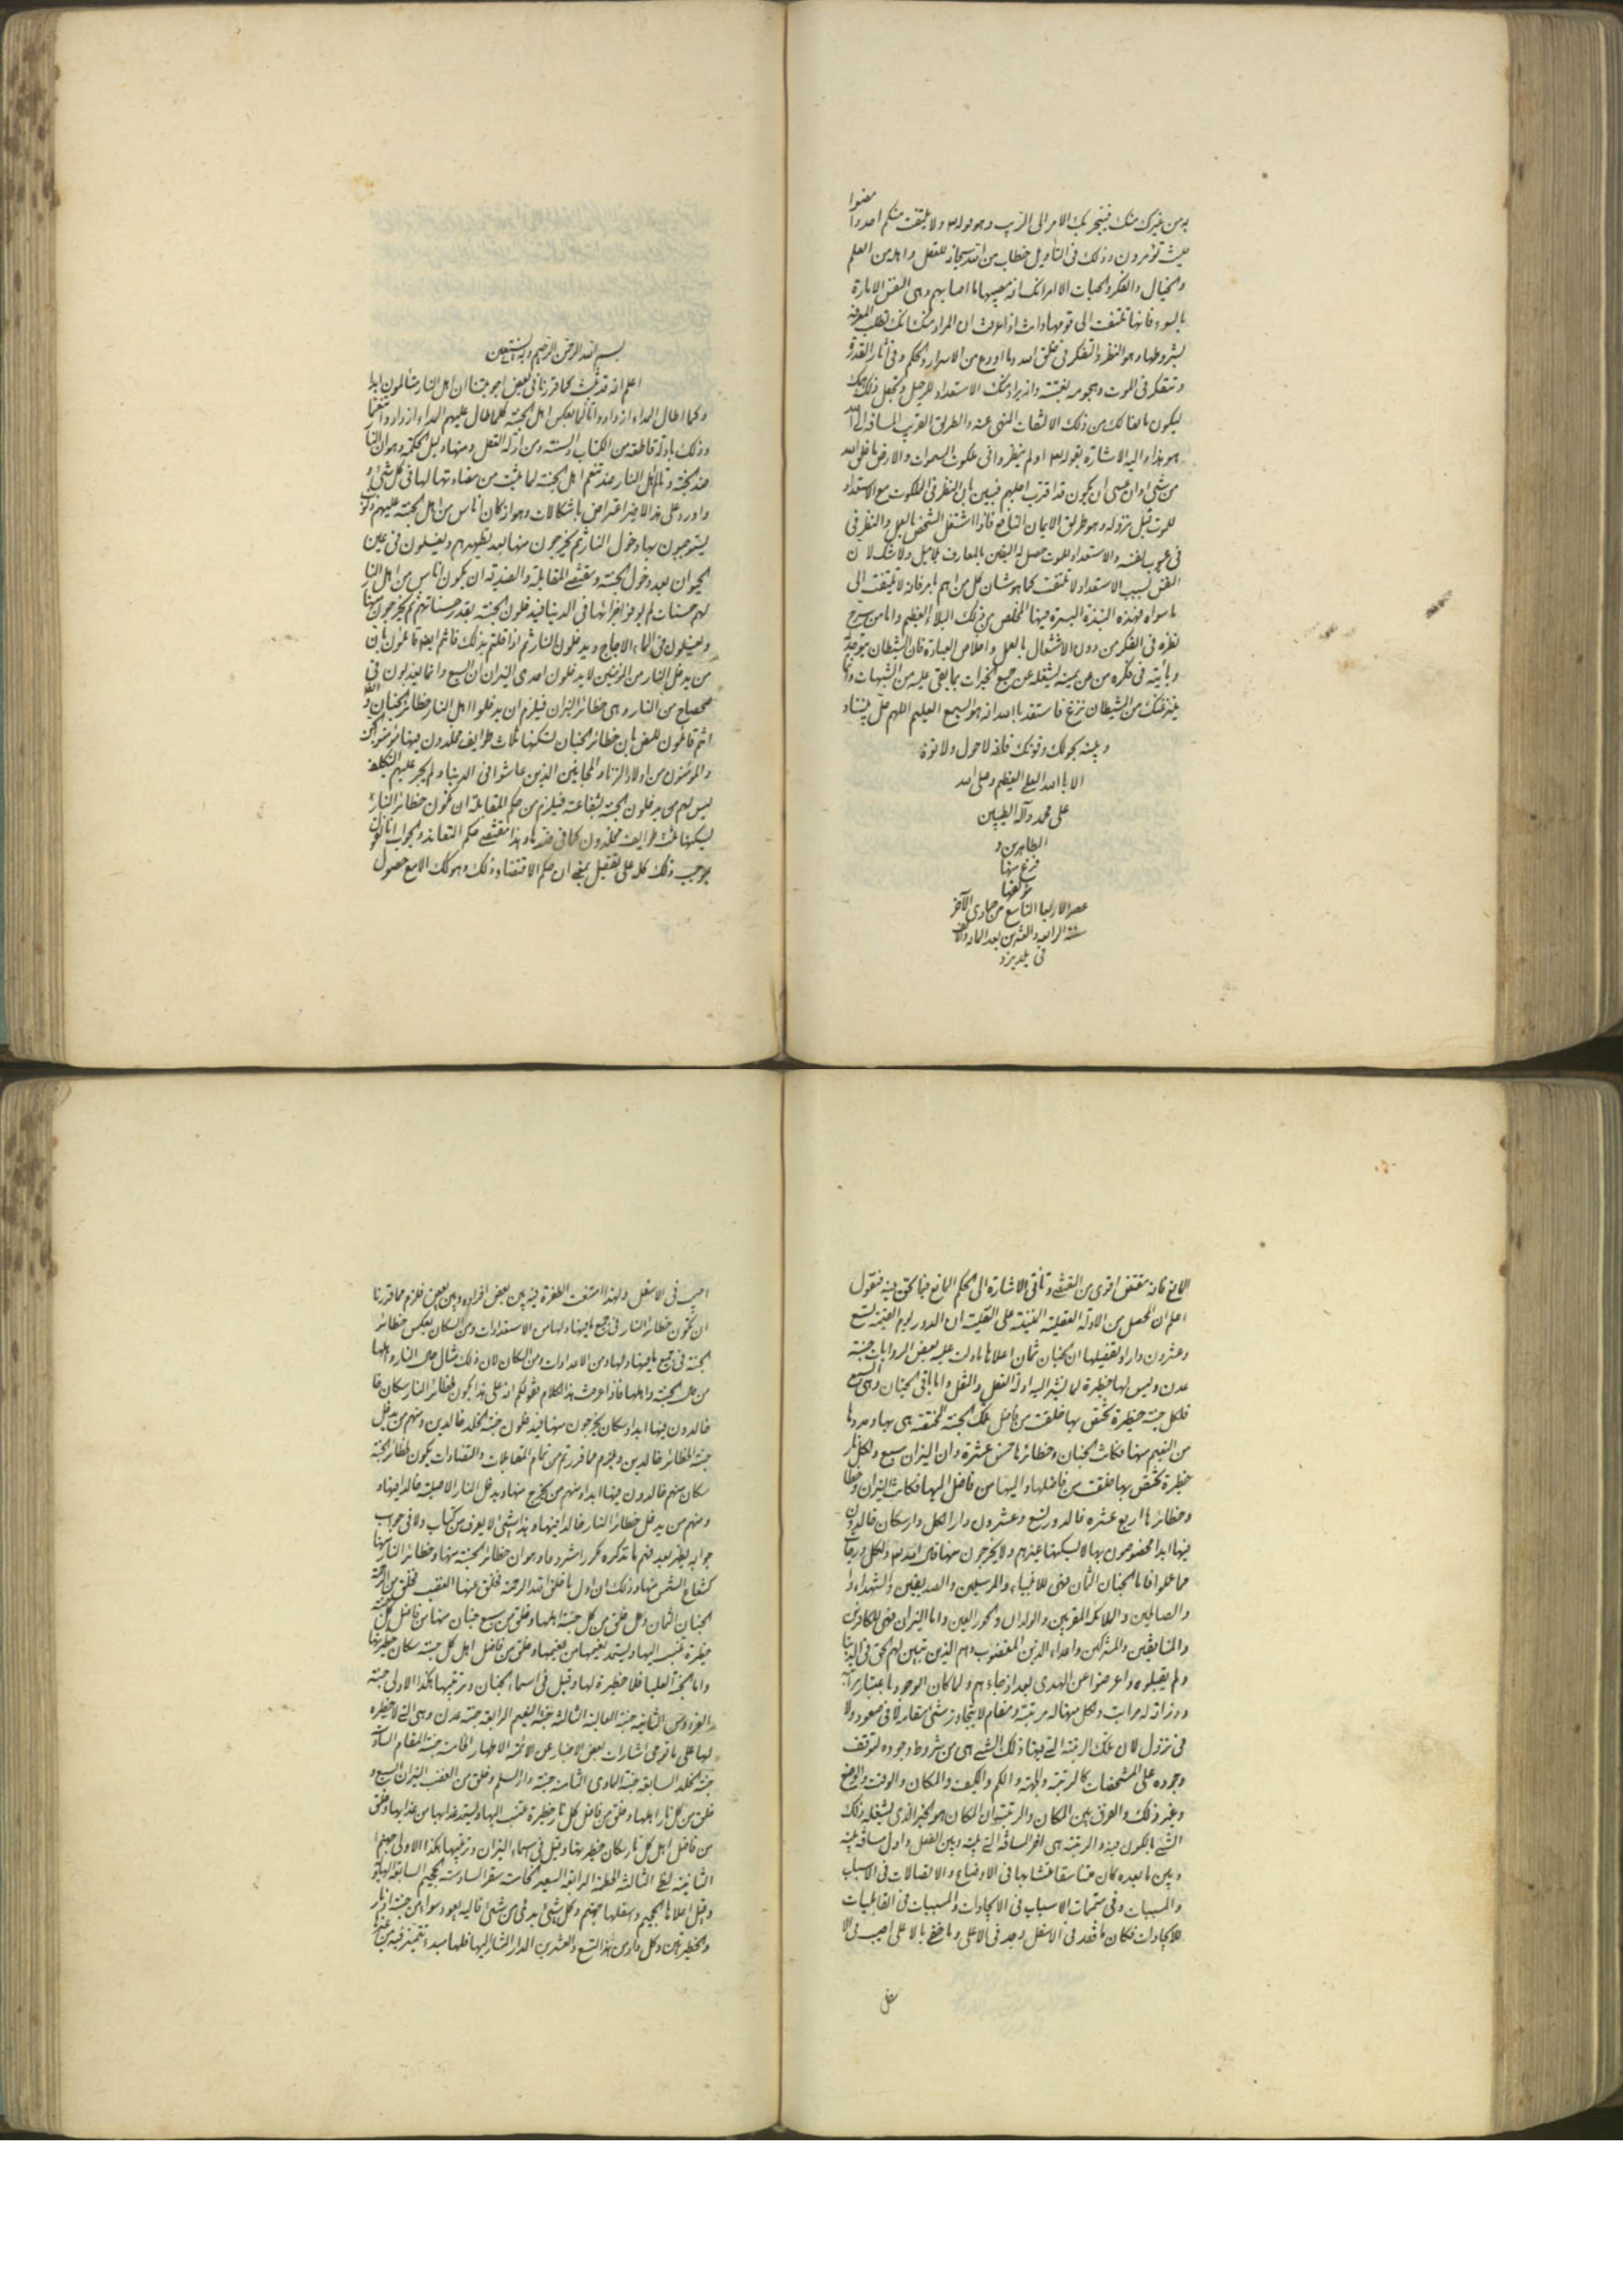 مضوا
به من غيرك منك فينجر بك الامر الى الريب وهو قوله ولا يلتفت منكم احد وا
حيث تؤمرون وذلك في التأويل خطاب من الله سبحانه للعقل واهله من العلم
والخيال والفكر والحيات الا امرأتك انه مصيبها ما اصابهم وهي النفس الامارة
بالسوء فانها تلتفت الى قومها واذا عرفت ان المراد منك انك تطلب المعرفة
بشروطها وهو النظر والتفكر في خلق الله وما اودع من الاسرار والحكم وفي آثار القدرة
وتتفكر في الموت وهجومه بغتة وانه يراد منك الاستعداد للرحيل وتجعل ذلك همك
ليكون مانعا لك من ذلك الالتفات المنهي عنه والطريق القريب المسافة الى الله
هو هذا واليه الاشارة بقوله اولم ينظروا في ملكوت السموات والارض وما خلق الله
من شئ وان عسى ان يكون قد اقترب اجلهم فبين بان النظر في الملكوت مع الاستعداد
للموت قبل نزوله وهو طريق الايمان النافع فاذا اشتغل الشخص بالعمل والنظر في
في عيوب نفسه والاستعداد للموت حصل له اليقين بالمعارف لا شك لان
النفس بسبب الاستعداد لا تلتفت كما هو شان كل من اهم بامر فانه لا يلتفت الى
ما سواه فهذه النبذة اليسيرة فيها المخلص من ذلك البلاء العظيم واما من سرح
نظره في الفكر من دون الاشتغال بالعمل واخلاص العبادة فان الشيطان
وياتيه في فكره من عن يمينه ليشغله عن جميع الخيرات بما يلقى عليه من الشبهات واما
ينزغنك من الشيطان نزغ فاستعذ بالله انه هو السميع العليم اللهم حل بيننا و
وبينه بحولك وقوتك فانه لا حول ولا قوة
الا بالله العلي العظيم وصلى الله
على محمد وآله الطيبين
الطاهرين و
فرغ منها
مؤلفها
عصر الاربعا التاسع من جمادى الآخر
سنة الرابعة والعشرين بعد المائتين والالف
في بلد يزد
بسم الله الرحمن الرحيم وبه نستعين
اعلم انه قد ثبت كما قررنا في بعض اجوبتنا ان اهل النار يتألمون ابدا
وكلما طال المدا ازدادوا تألما بعكس اهل الجنة كلما طال عليهم المداء ازدادوا تنعما
وذلك بادلة قاطعة من الكتاب والسنة ومن ادلة العقل ومنها دليل الحكمة وهو ان النار
ضد الجنة وتألم اهل النار ضد تنعم اهل الجنة لما ثبت من مضادتها لها في كل شئ و
واورد على هذا الاخير اعتراض باشكالات وهو اذا كان اناس من اهل الجنة عليهم ذنوب
يستوجبون بها دخول النار ثم يخرجون منها بعد تطهيرهم ويغسلون في عين
الحيوان بعد دخول الجنة ومقتضى المقابلة والضدية ان يكون اناس من اهل النار
لهم حسنات لم يوفوا جزائها في الدنيا فيدخلون الجنة بقدر حسناتهم ثم يخرجون منها
ويغسلون في الماء الاجاج ويدخلون النار ثم اذا قلتم بذلك فانتم ايضا قائلون بان
من يدخل النار من المؤمنين لا يدخلون احدى النيران السبع وانما يعذبون في
ضحضاح من النار وهي حظائر النيران فيلزم ان يدخلوا اهل النار حظائر الجنان
انتم قائلون للنص بان حظائر الجنان تسكنها ثلاث طوايف مخلدون فيها مؤمنوا الجن
والمؤمنون من اولاد الزنا والمجانين الذين عاشوا في الدنيا ولم يجر عليهم التكليف
ليس لهم من يدخلون الجنة بشفاعته فيلزم من حكم المقابلة ان تكون حظائر النار
يسكنها ثلث طوايف مخلدون كما في ضدها وهذا مقتضى حكم التضاد والجواب انا نقول
بموجب ذلك كله على تفصيل يعني ان حكم الاقتضاء وذلك وهو كك الا مع حصول
المانع فانه مقتض اقوى من المقتضى وتأتي الاشارة الى الحكم المانع فيما نحن فيه فنقول
اعلم ان المحصل من الادلة العقلية المبنية على النقلية ان الدور ليوم القيمة تسع
وعشرون دارا وتفصيلها ان الجنان ثمان اعلاها ما دلت عليه بعض الروايات جنة
عدن وليس لها حظيرة لما تشير اليه ادلة العقل والنقل واما باقي الجنان وهي السبع
فلكل جنة حظيرة تختص بها خلقت من فاضل تلك الجنة المختصة هي بها ومددها
من النعيم منها فكانت الجنان وحظائرها خمس عشرة وان النيران سبع ولكل نار
حظيرة تختص بها خلقت من فاضلها واليها من فاضل اليها فكانت النيران
وحظائرها اربع عشرة فالدور تسع وعشرون دارا لكل دار سكان خالدون
فيها ابدا مخصوصون بها لا يسكنها غيرهم ولا يخرجون منها قال الله تعالى ولكل درجات
مما عملوا فاما الجنان الثمان فهي للانبياء والمرسلين والصديقين والشهداء
والصالحين والملائكة المقربين والولدان والحور العين واما النيران فهي للكافرين
والمنافقين والمشركين واعداء الدين المغضوب وهم الذين تبين لهم الحق في الدنيا
ولم يقبلوه واعرضوا عن الهدى بعد اذ جاءهم ولما كان الوجود باعتبار
وذراته له مراتب ولكل منها له مرتبة ومقام لا يتجاوز شئ مقامه لا في صعود ولا
في نزول لان تلك الرتبة التي فيها ذلك الشئ هي من شروط وجوده لتوقف
وجوده على المشخصات كالرتبة والجهة والكم والكيف والمكان والوقت والوضع
وغير ذلك والفرق بين المكان والرتبة ان المكان هو الحيز الذي يشغله ذلك
الشئ بالكون فيه والرتبة هي اقرالمسافة التي بينه وبين الفعل واول مسافة بينه
وبين ما بعده كان متناسقا متشابها في الاوضاع والاتصالات في الاسباب
والمسببات وفي متممات الاسباب في الايجادات والمسببات في القابليات
للايجادات فكان ما فقد في الاسفل وجد في الاعلى وما خفي بالاعلى اصيب في الا
على
اصيب في الاسفل ولهذا امتنعت الطفرة فيه بين بعض افراده وبين بعض فلزم مما قررنا
ان تكون حظائر النار في جميع ما فيها ولها من الاستعدادات ومن السكان بعكس حظائر
الجنة في جميع ما فيها ولها من الامدادات ومن السكان لان ذلك مثال من النار واهلها
من مثل الجنة واهلها فاذا عرفت هذا الكلام نقول لكم انه على هذا يكون لحظائر النار سكان
خالدون فيها ابدا وسكان يخرجون منها فيدخلون جنة الخلد خالدين ومنهم من يدخل
جنة الحظائر خالدين ويلزم مما قررتم من تمام المقابلات والتضادات يكون لحظائر الجنة
سكان منهم خالدون فيها ابدا ومنهم من يخرج منها ويدخل النار الاصلية خالدا فيها و
ومنهم من يدخل حظائر النار خالدا فيها وهذا شئ لا يعرف من كتاب ولا في جواب
جوابه يظهر بعد فهم ما نذكره مكررا مشروحا وهو ان حظائر الجنة منها وحظائر النار منها
كشعاع الشمس منها وذلك ان اول ما خلق الله الرحمة فخلق منها الغضب فخلق من الرحمة
الجنان الثمان وخلق من كل جنة اهلها وخلق من سبع جنان منها من فاضل كل جنة
حظيرة تنتسب اليها وتستمد نعيمها من نعيمها وخلق من فاضل اهل كل جنة سكان حظيرتها
واما الجنة العليا فلا حظيرة لها وقيل في اسماء الجنان وترتيبها هكذا الاولى جنة
الفردوس الثانية جنة العالية الثالثة جنة النعيم الرابعة جنة عدن وهي التي لا حظيرة
لها على ما فهم من اشارات بعض الاخبار عن الائمة الاطهار الخامسة جنة المقام السادسة
جنة الخلد السابعة جنة المأوى الثامنة جنة دار السلم وخلق من الغضب النيران السبع و
خلق من كل نار اهلها وخلق من فاضل كل نار حظيرة تنتسب اليها وتستمد عذابها من عذابها وخلق
من فاضل اهل كل نار سكان حظيرتها وقيل في اسماء النيران وترتيبها هكذا الاولى جهنم
الثانية لظى الثالثة الحطمة الرابعة السعير الخامسة سقر السادسة الجحيم السابعة الهاوية
وقيل اعلاها الجحيم واسفلها جهنم وكل شئ ابدئ من شئ فاليه يعود سواء من جنة او نار
والحظيرتين وكل دار من هذا التسع والعشرين الدار المشار اليها فلها مبدء تتميز فيه عن غيرها